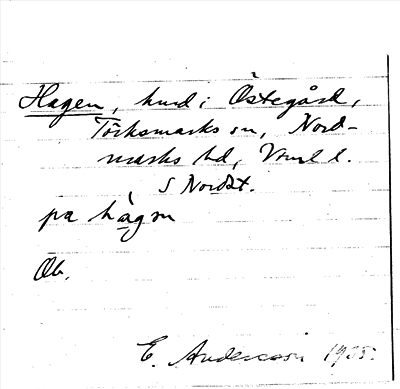 Hagen, hmd i Östegård,
Töcksmarks sn, Nord-
marks hd, Vrml l.
S Nordst.
pa hàgən
Ob.
E. Andersson 1935.